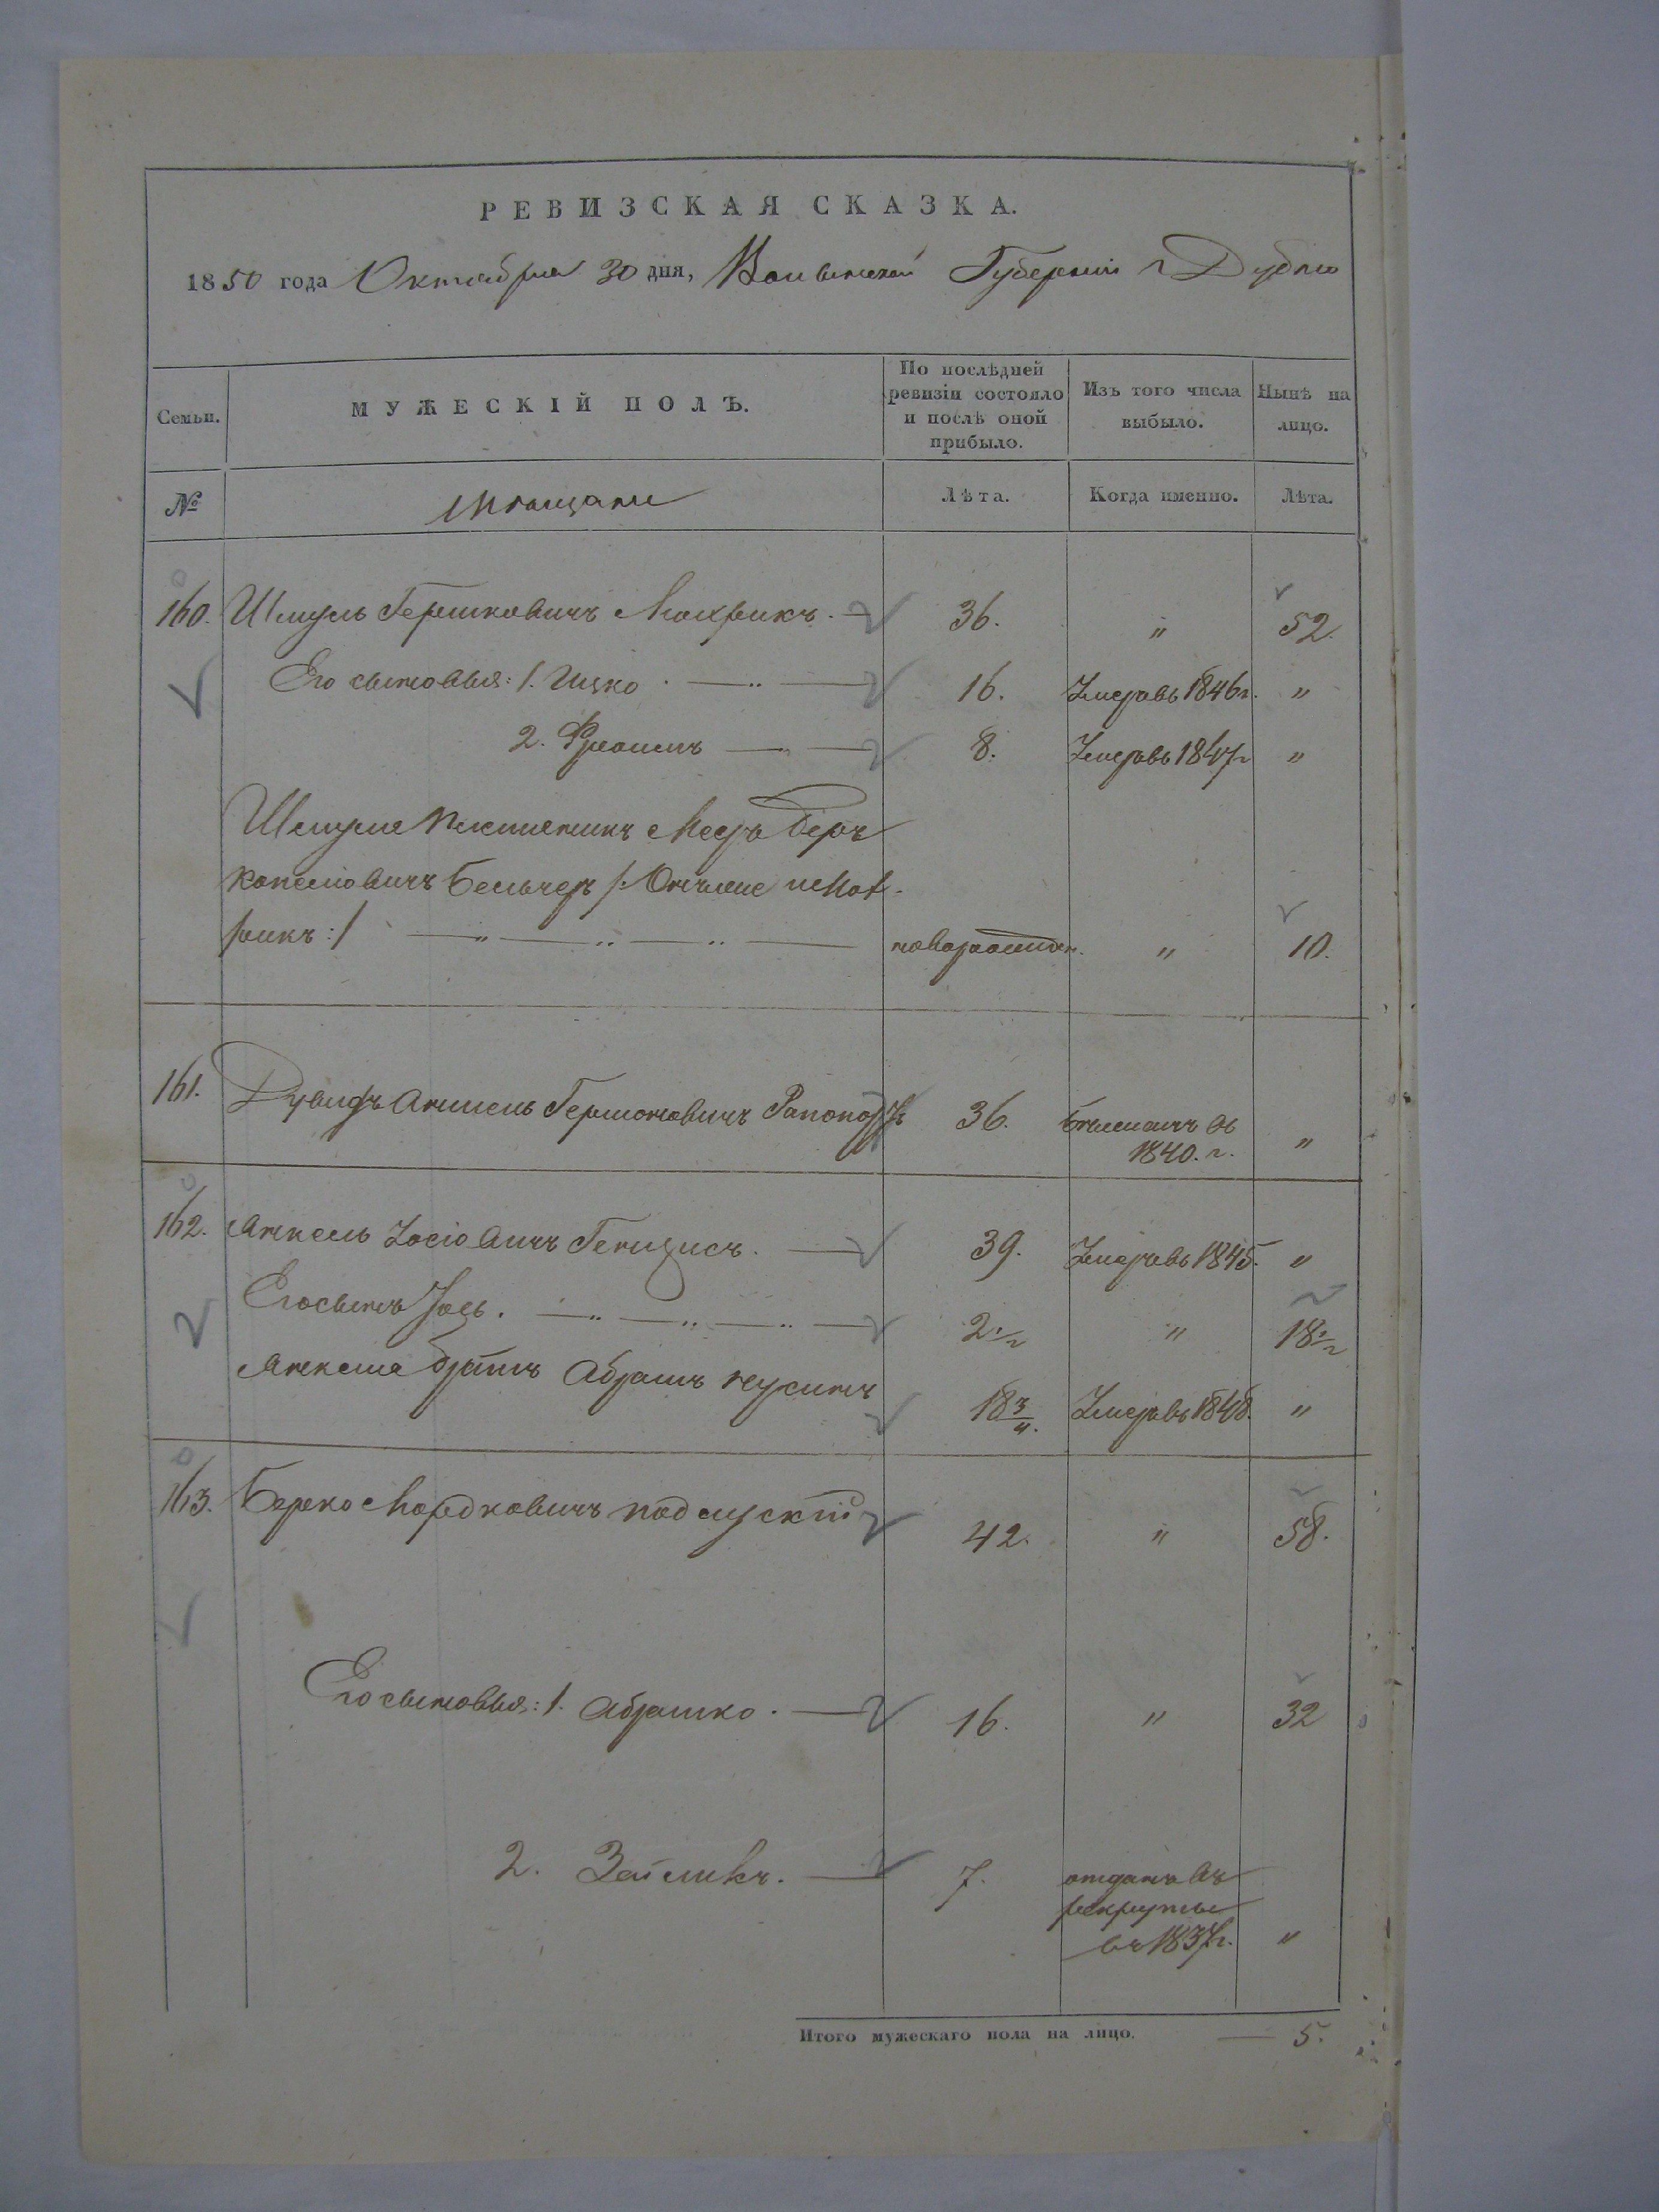 РЕВИЗСКАЯ СКАЗКА.
1850 года Октября 30 дня, Волынской Губернии г Дубно
Семьи. МУЖЕСКІЙ ПОЛЪ. По послѣдней ревизіи состояло и послѣ оной прибыло. Изъ того числа выбыло. Нынѣ на лицо.
№ Мѣщане Лѣта. Когда именно. Лѣта.
160. Шмуль Гершковичъ 36. " 52.
Его сыновья: 1. Ицко. 16. Умеръ въ 1846 г. "
2. Фроимъ 8. Умеръ въ 1847 г "
Шмуля племяникъ Мееръ Беръ
Копеліовичъ Бельчеръ /:
рикъ:/ новорожден. " 10.
161. Дувидъ Аншель Гершоновичъ Рапопортъ 36. 1840. г. "
162. Янкель Іосіовичъ 39. Умеръ въ 1845. "
Его сынъ Іось. 2 1/2 " 18 1/2
Янкеля братъ Абрамъ Нухимъ 18 3/4. Умеръ въ 1848. "
163. Берко Мордковичъ Подлускій 42. " 58.
Его сыновья: 1. Абрамко. 16. " 32
2. Зейликъ. 7. отданъ въ
рекруты
въ 1837 г. "
Итого мужескаго пола на лицо. 5.